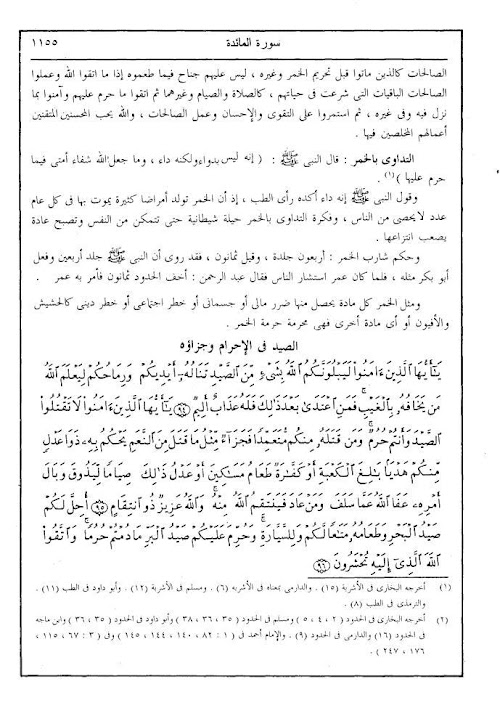 سورة المائدة
١١٥٥
الصالحات كالذين ماتوا قبل تحريم الخمر وغيره ، ليس عليهم جناح فيما طعموه إذا ما اتقوا الله وعملوا
الصالحات الباقيات التى شرعت فى حياتهم ، كالصلاة والصيام وغيرهما ثم اتقوا ما حرم عليهم وآمنوا بما
نزل فيه وفى غيره ، ثم استمروا على التقوى والإحسان وعمل الصالحات ، والله يحب المحسنين المتقنين
أعمالهم المخلصين فيها .
التداوى بالخمر : قال النبى ﷺ : ( إنه ليس بدواء ولكنه داء ، وما جعل الله شفاء أمتى فيما
حرم عليها ) (١) .
وقول النبى ﷺ إنه داء أكده رأى الطب ، إذ أن الخمر تولد أمراضا كثيرة يموت بها فى كل عام
عدد لايحصى من الناس ، وفكرة التداوى بالخمر حيلة شيطانية حتى تتمكن من النفس وتصبح عادة
يصعب انتزاعها .
وحكم شارب الخمر : أربعون جلدة ، وقيل ثمانون ، فقد روى أن النبى ﷺ جلد أربعين وفعل
أبو بكر مثله ، فلما كان عمر استشار الناس فقال عبد الرحمن : أخف الحدود ثمانون فأمر به عمر .
ومثل الخمر كل مادة يحصل منها ضرر مالى أو جسمانى أو خطر اجتماعى أو خطر دينى كالحشيش
والأفيون أو أى مادة أخرى فهى محرمة حرمة الخمر .
الصيد فى الإحرام وجزاؤه
يَٰٓأَيُّهَا ٱلَّذِينَ ءَامَنُوا۟ لَيَبْلُوَنَّكُمُ ٱللَّهُ بِشَىْءٍ مِّنَ ٱلصَّيْدِ تَنَالُهُۥٓ أَيْدِيكُمْ وَرِمَاحُكُمْ لِيَعْلَمَ ٱللَّهُ
مَن يَخَافُهُۥ بِٱلْغَيْبِ فَمَنِ ٱعْتَدَىٰ بَعْدَ ذَٰلِكَ فَلَهُۥ عَذَابٌ أَلِيمٌ ﴿٩٤﴾ يَٰٓأَيُّهَا ٱلَّذِينَ ءَامَنُوا۟ لَا تَقْتُلُوا۟
ٱلصَّيْدَ وَأَنتُمْ حُرُمٌ وَمَن قَتَلَهُۥ مِنكُم مُّتَعَمِّدًا فَجَزَآءٌ مِّثْلُ مَا قَتَلَ مِنَ ٱلنَّعَمِ يَحْكُمُ بِهِۦ ذَوَا عَدْلٍ
مِّنكُمْ هَدْيًۢا بَٰلِغَ ٱلْكَعْبَةِ أَوْ كَفَّٰرَةٌ طَعَامُ مَسَٰكِينَ أَوْ عَدْلُ ذَٰلِكَ صِيَامًا لِّيَذُوقَ وَبَالَ
أَمْرِهِۦ عَفَا ٱللَّهُ عَمَّا سَلَفَ وَمَنْ عَادَ فَيَنتَقِمُ ٱللَّهُ مِنْهُ وَٱللَّهُ عَزِيزٌ ذُو ٱنتِقَامٍ ﴿٩٥﴾ أُحِلَّ لَكُمْ
صَيْدُ ٱلْبَحْرِ وَطَعَامُهُۥ مَتَٰعًا لَّكُمْ وَلِلسَّيَّارَةِ وَحُرِّمَ عَلَيْكُمْ صَيْدُ ٱلْبَرِّ مَا دُمْتُمْ حُرُمًا وَٱتَّقُوا۟
ٱللَّهَ ٱلَّذِىٓ إِلَيْهِ تُحْشَرُونَ ﴿٩٦﴾
(١) أخرجه البخارى فى الأشربة (١٥) . والدارمى بمعناه فى الأشربة (٦) . ومسلم فى الأشربة (١٢) . وأبو داود فى الطب (١١) .
والترمذى فى الطب (٨) .
(٢) أخرجه البخارى فى الحدود ( ٢ ، ٤ ، ٥ ) ومسلم فى الحدود ( ٣٥ ، ٣٦ ، ٣٨ ) وأبو داود فى الحدود ( ٣٥ ، ٣٦ ) وابن ماجه
فى الحدود (١٦) والدارمى فى الحدود (٩) . والإمام أحمد فى ( ١ : ٨٢ ، ١٤٠ ، ١٤٤ ، ١٤٥ ) وفى ( ٣ : ٦٧ ، ١١٥ ،
١٧٦ ، ٢٤٧ ) .